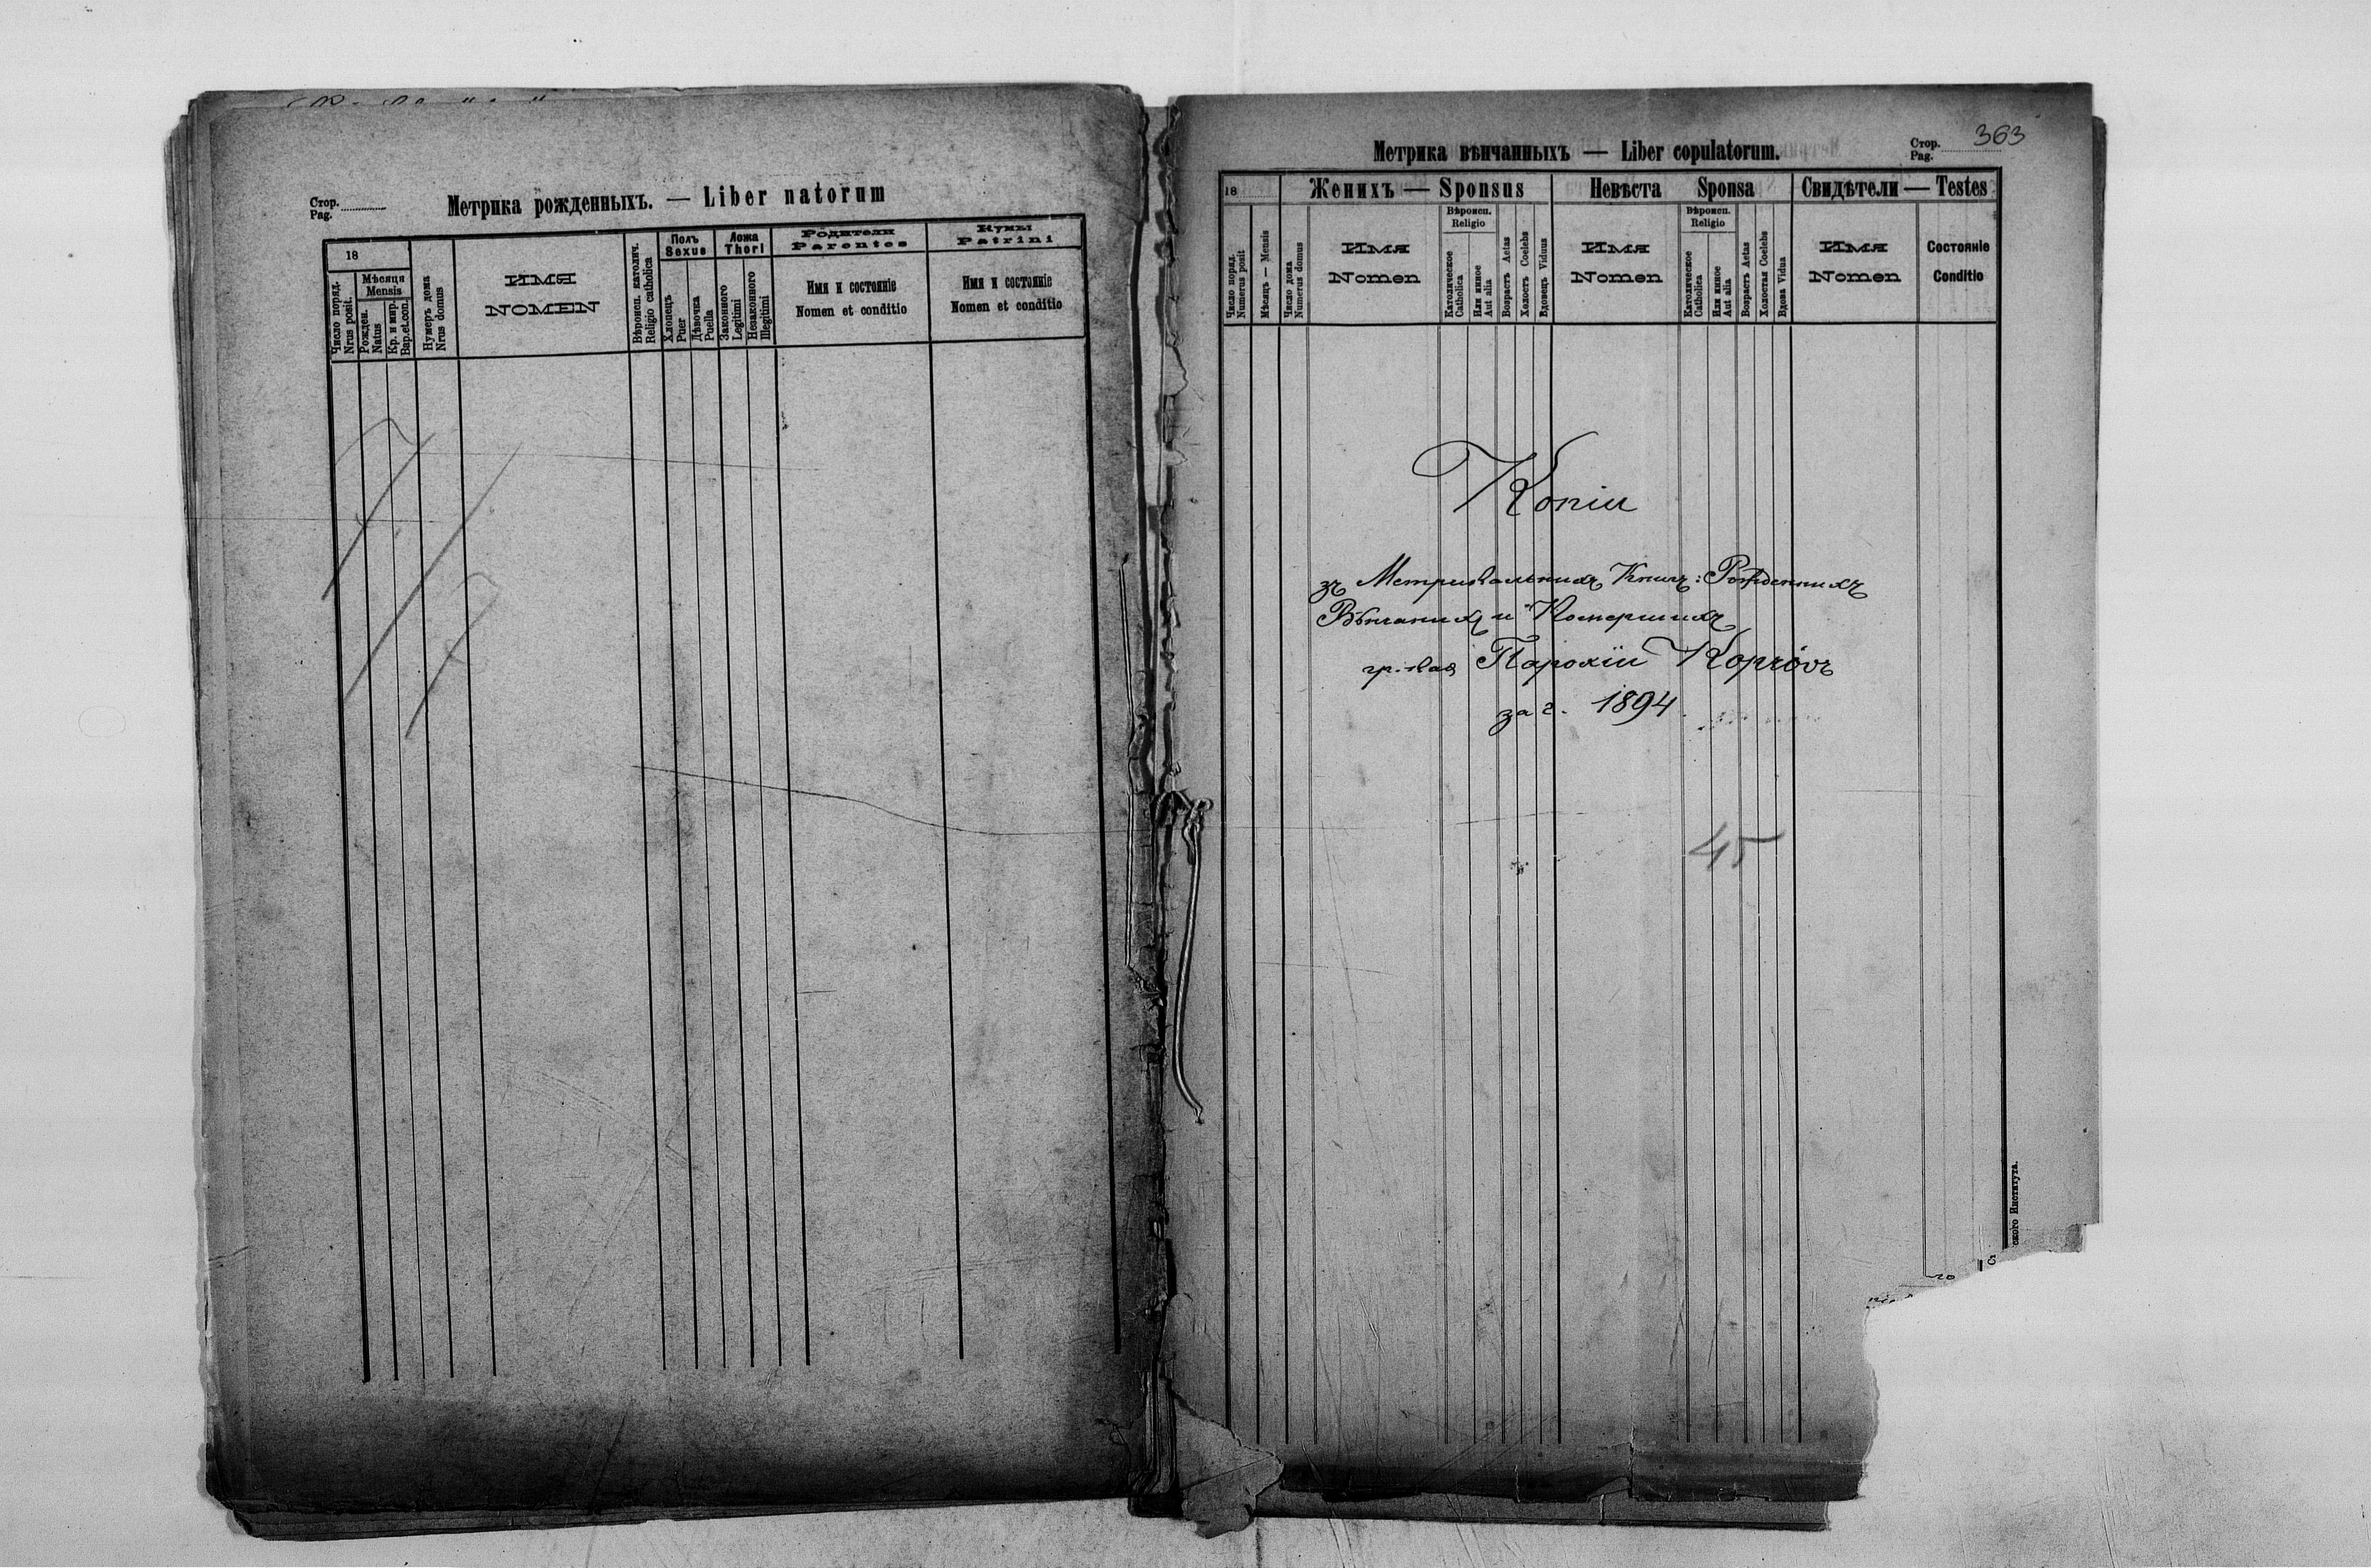 Стор.
Pag.
Метрика рожденныхъ. — Liber natorum
18
Число поряд.
Nrus posit.
Мѣсяца
Mensis
Рожден.
Natus
Кр. и мир.
Bap.et.con.
Нумеръ дома
Nrus domus
ИМЯ
NOMEN
Вѣроисп. католич.
Religio catholica
Полъ
Sexus
Хлопецъ
Puer
Дѣвочка
Puella
Ложа
Thori
Законного
Legitimi
Незаконного
Illegitimi
Родители
Parentes
Имя и состоянiе
Nomen et conditio
Кумы
Patrini
Имя и состоянiе
Nomen et conditio
Метрика вѣнчанныхъ — Liber copulatorum.
Стор.
Pag.
363
18
Число поряд.
Numerus posit
Мѣсяцъ — Mensis
Число дома
Numerus domus
Женихъ — Sponsus
Имя
Nomen
Вѣроисп.
Religio
Католическое
Catholica
Или инное
Aut alia
Возрастъ Aetas
Холостъ Coelebs
Вдовецъ Viduus
Невѣста Sponsa
Имя
Nomen
Вѣроисп.
Religio
Католическое
Catholica
Или инное
Aut alia
Возрастъ Aetas
Холостая Coelebs
Вдова Vidua
Свидѣтели — Testes
Имя
Nomen
Состоянiе
Conditio
Копіи
зъ Метрикальнихъ Книгъ: Рожденнихъ
Вѣнчанихъ и Помершихъ
гр. кат Парохіи Корчôвъ
за г. 1894
45
ского Института.